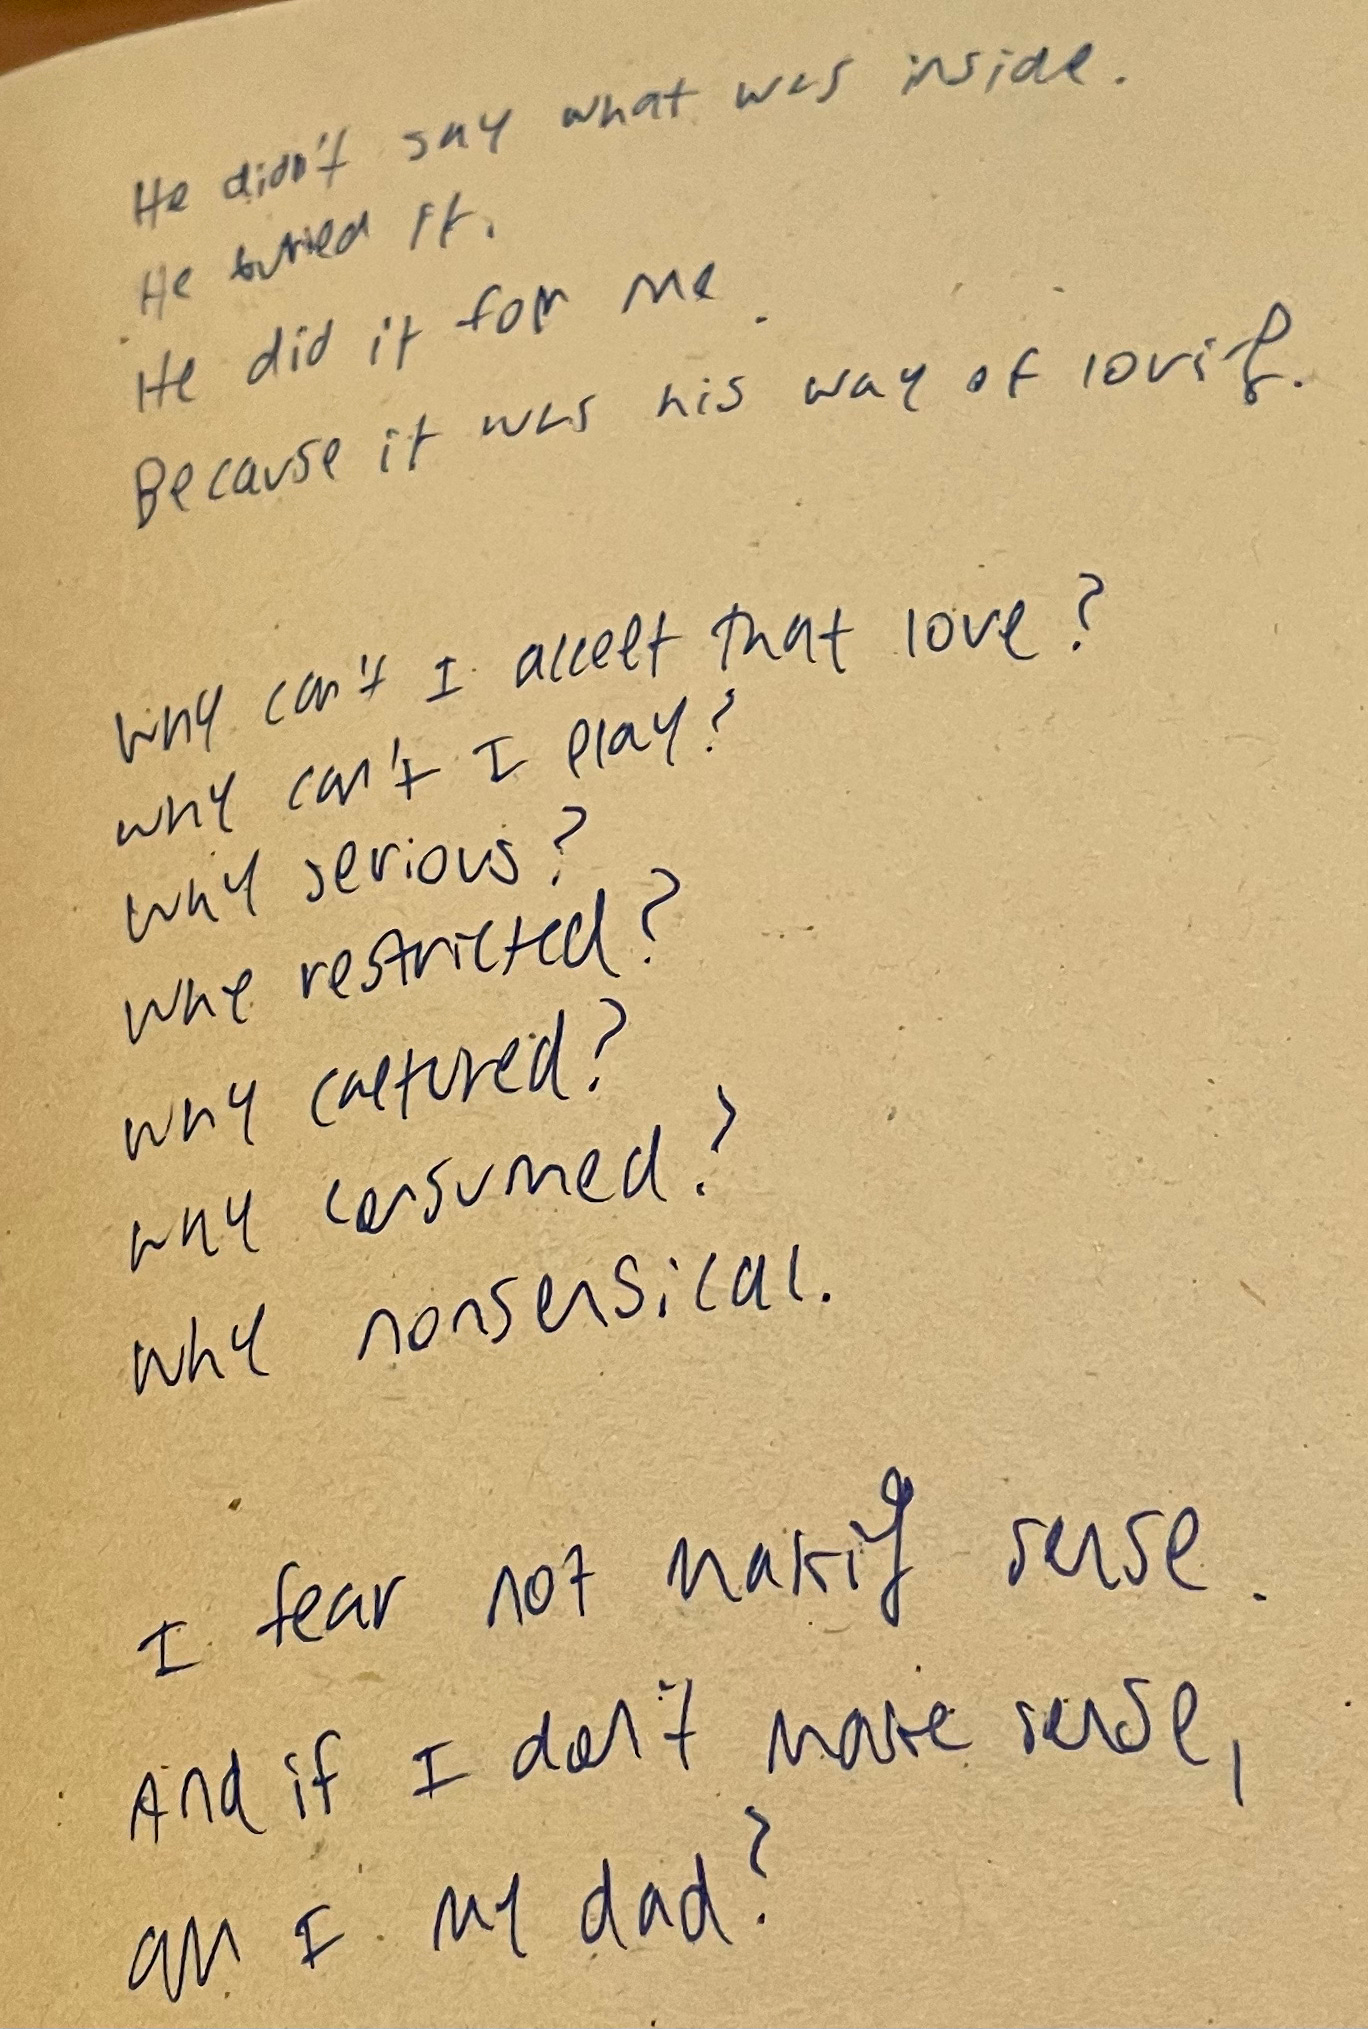 He didn't say what was inside.
He buried it.
He did it for me.
Because it was his way of loving.
Why can't I accept that love?
Why can't I play?
Why serious?
Why restricted?
Why captured?
Why consumed?
Why nonsensical.
I fear not making sense.
And if I don't make sense,
am I my dad?